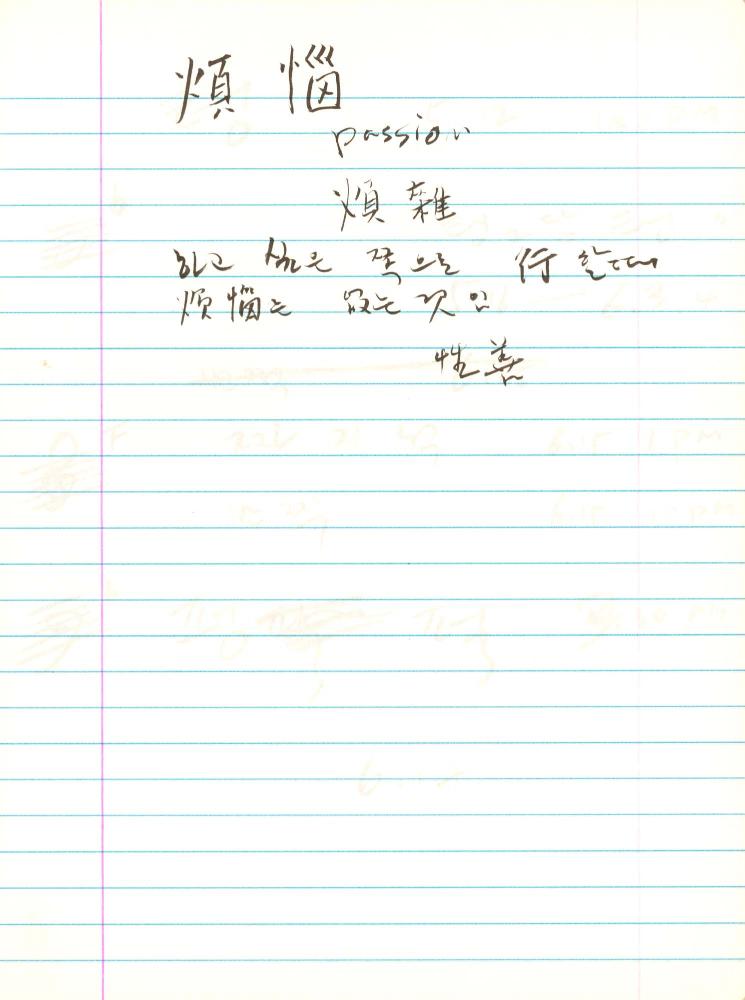 煩 惱
passion
煩 雜
하고 싶은 쪽으로 行 할때
煩惱는 없는 것임
性善